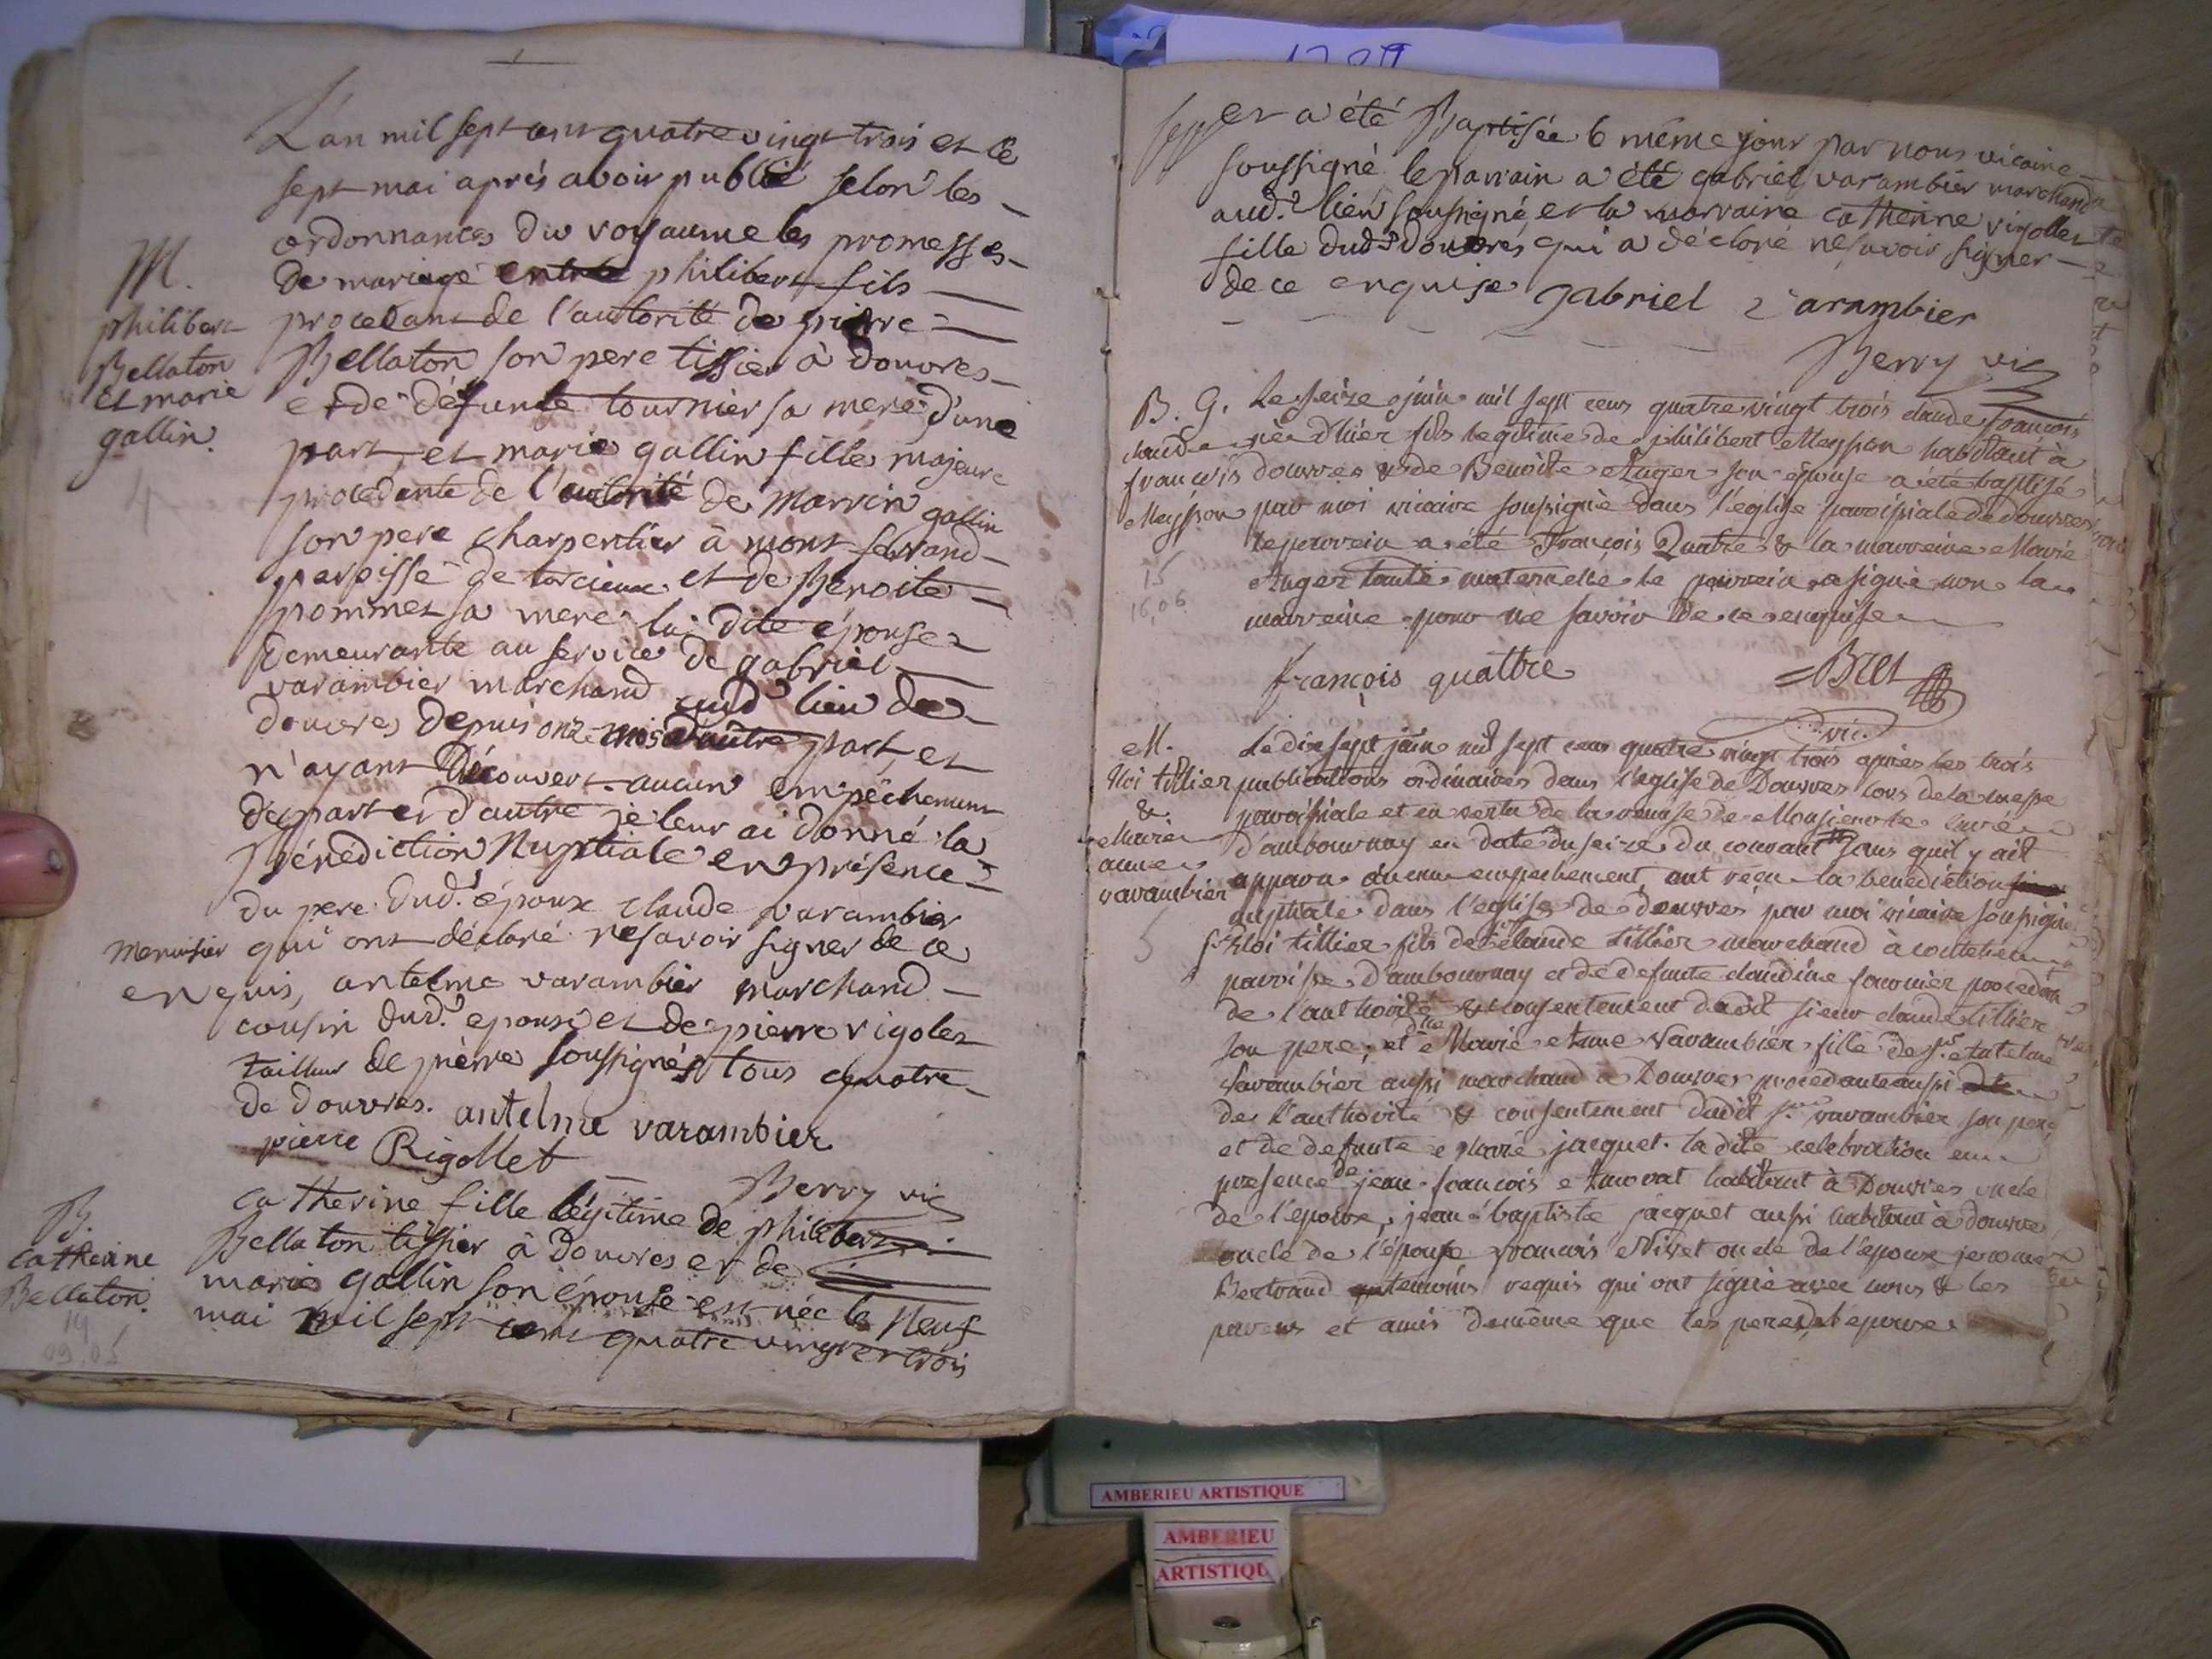 L'an mil sept cent quatre vingt trois et le
sept mai aprés avoir publié selon les
ordonnances du royaume les promesses
de mariage entre philibert fils
procedant de l'autorité de pierre
Bellaton son pere tissier à douvres
et de défunte tournier sa mere d'une
part, et marie gallin fille majeure
procedante de l'autorité de Marvin gallin
son pere charpentier à mont ferrand
paroisse de torcieux et de Benoite
pommet sa mere la dite épouse
demeurante au service de gabriel
varambier marchand aud.t lieu de
douvres depuis onze mois d'autre part, et
n'ayant découvert aucun empêchement
de part et d'autre je leur ai donné la
Bénédiction Nuptiale en présence
du pere dud.t époux claude varambier
menuisier qui ont déclaré ne savoir signer de ce
enquis, antelme varambier marchand
cousin dud.t epoux et de pierre vigolet
tailleur de pierre soussignés tous quatre
de douvres. antelme varambier
pierre Rigollet
Berry vic
M.
philibert
Bellaton
et marie
gallin.
4
Catherine fille légitime de philibert
Bellaton tissier à Douvres et de
marie gallin son épouse est née le Neuf
mai mil sept cent quatre vingt et trois
B.
Catherine
Bellaton.
14
09.05
et a été Baptisée le même jour par nous vicaire
soussigné le parrain a été gabriel varambier marchand
aud.t lieu soussigné, et la marraine catherine vigollet
fille dud.t douvres qui a déclaré ne savoir signer
de ce enquise gabriel varambier
Berry vic
B. G.
claude
françois
Meysson
15
16.06
Le seize juin mil sept cens quatre vingt trois claude françois
née d'hier fils legitime de philibert Meysson habitant à
douvres & de Benoite Auger son épouse a été baptisé
par moi vicaire soussigné dans l'eglise paroissiale de douvres
le parrein a été François Quatre & la marreine Marie
Auger tante maternelle le parrein a signé non la
marreine pour ne savoir de ce enquise
françois quattre Bret
vic.
M.
Eloi tillier
&
Marie
anne
varambier
5
Le dix sept juin mil sept cens quatre vingt trois après les trois
publications ordinaires dans l'eglise de Douvres lors de la messe
paroissiale et en vertu de la remise de Monsieur le curé
d'ambournay en date du seize du courant sans quil y ait
apparu aucun empechement, ont reçu la benediction
nuptiale dans l'eglise de douvres par moi vicaire soussigné
s.r Eloi tillier fils de s.r claude tillier marchand à
paroisse d'ambournay et de defunte claudine fournier procedant
de l'authorité & consentement dudit sieur claude tillier
son pere; et dlle Marie Anne Varambier fille de s.r Antelme
Varambier aussi marchand à Douvres procedante aussi
de l'authorité & consentement dudit s.r varambier son pere,
et de defunte Marie jacquet. la dite celebration en
presence de jean françois habitant à Douvres oncle
de l'epoux, jean baptiste jacquet aussi habitant à douvres
oncle de l'épouse françois Nivet oncle de l'epoux jerome
Bertrand temoins requis qui ont signé avec nous & les
parens et amis de même que les peres, et epouse
AMBERIEU ARTISTIQUE
AMBERIEU
ARTISTIQU